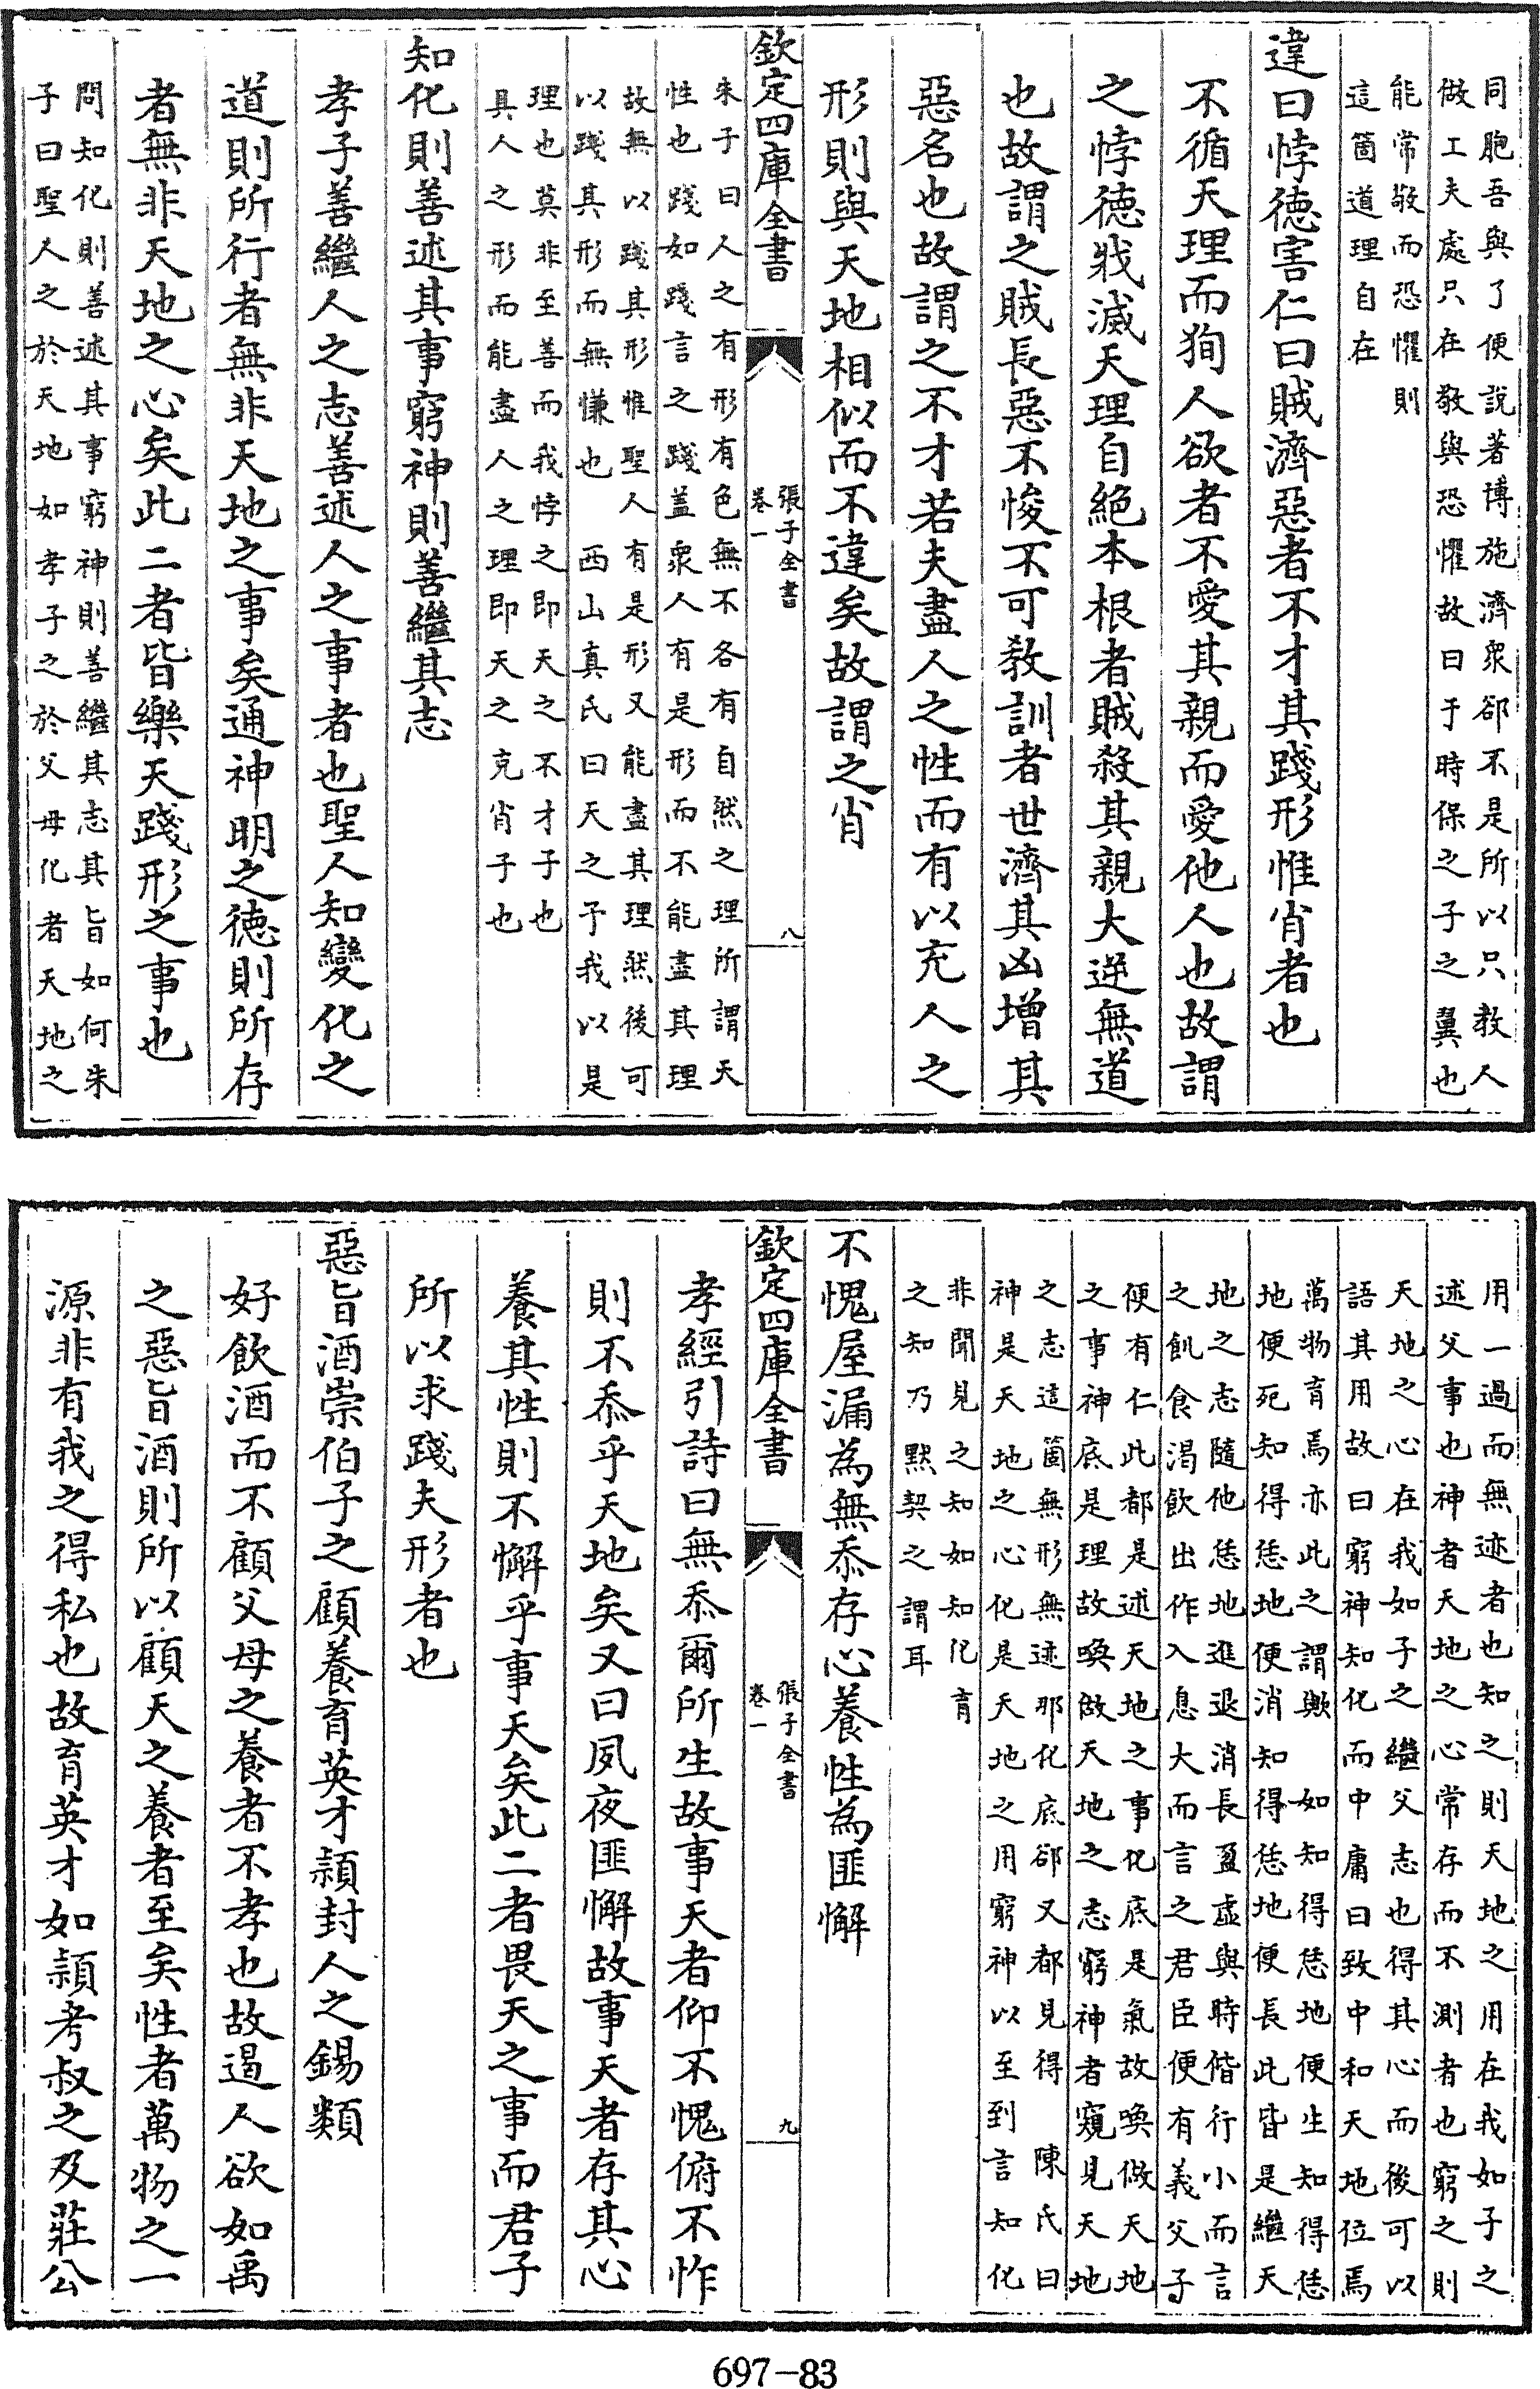 同胞吾與了便説著博施濟衆卻不是所以只教人
做工夫處只在敬與恐懼故曰于時保之子之翼也
能常敬而恐懼則
這箇道理自在
違曰悖徳害仁曰賊濟惡者不才其踐形惟肖者也
不循天理而狥人欲者不愛其親而愛他人也故謂
之悖徳戕滅天理自絶本根者賊殺其親大逆無道
也故謂之賊長惡不悛不可教訓者世濟其凶增其
惡名也故謂之不才若夫盡人之性而有以充人之
形則與天地相似而不違矣故謂之肖
欽定四庫全書
張子全書
卷一
八
朱子曰人之有形有色無不各有自然之理所謂天
性也踐如踐言之踐葢衆人有是形而不能盡其理
故無以踐其形惟聖人有是形又能盡其理然後可
以踐其形而無慊也 西山真氏曰天之予我以是
理也莫非至善而我悖之即天之不才子也
具人之形而能盡人之理即天之克肖子也
知化則善述其事窮神則善繼其志
孝子善繼人之志善述人之事者也聖人知變化之
道則所行者無非天地之事矣通神明之徳則所存
者無非天地之心矣此二者皆樂天踐形之事也
問知化則善述其事窮神則善繼其志其旨如何朱
子曰聖人之於天地如孝子之於父母化者天地之
用一過而無迹者也知之則天地之用在我如子之
述父事也神者天地之心常存而不測者也窮之則
天地之心在我如子之繼父志也得其心而後可以
語其用故曰窮神知化而中庸曰致中和天地位焉
萬物育焉亦此之謂歟 如知得恁地便生知得恁
地便死知得恁地便消知得恁地便長此皆是繼天
地之志隨他恁地進退消長盈虚與時偕行小而言
之飢食渴飲出作入息大而言之君臣便有義父子
便有仁此都是述天地之事化底是氣故喚做天地
之事神底是理故喚做天地之志窮神者窺見天地
之志這箇無形無迹那化底卻又都見得 陳氏曰
神是天地之心化是天地之用窮神以至到言知化
非聞見之知如知化育
之知乃黙契之謂耳
不愧屋漏為無忝存心養性為匪懈
欽定四庫全書
張子全書
卷一
九
孝經引詩曰無忝爾所生故事天者仰不愧俯不怍
則不忝乎天地矣又曰夙夜匪懈故事天者存其心
養其性則不懈乎事天矣此二者畏天之事而君子
所以求踐夫形者也
惡旨酒崇伯子之顧養育英才潁封人之錫類
好飲酒而不顧父母之養者不孝也故遏人欲如禹
之惡旨酒則所以顧天之養者至矣性者萬物之一
源非有我之得私也故育英才如潁考叔之及莊公
697-83